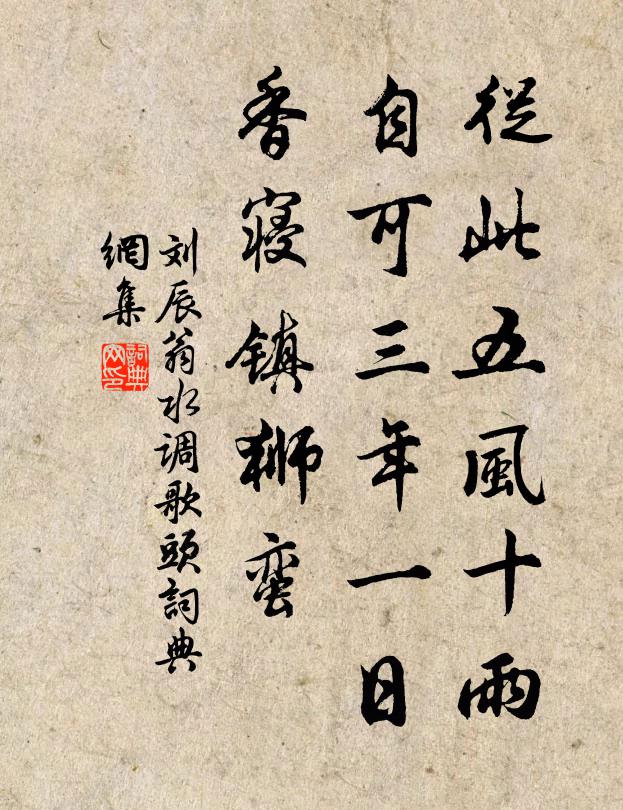 從此五風十雨
自可三年一日
香寝镇狮蛮
刘辰翁水调歌頭詞典
網集
詞典網印